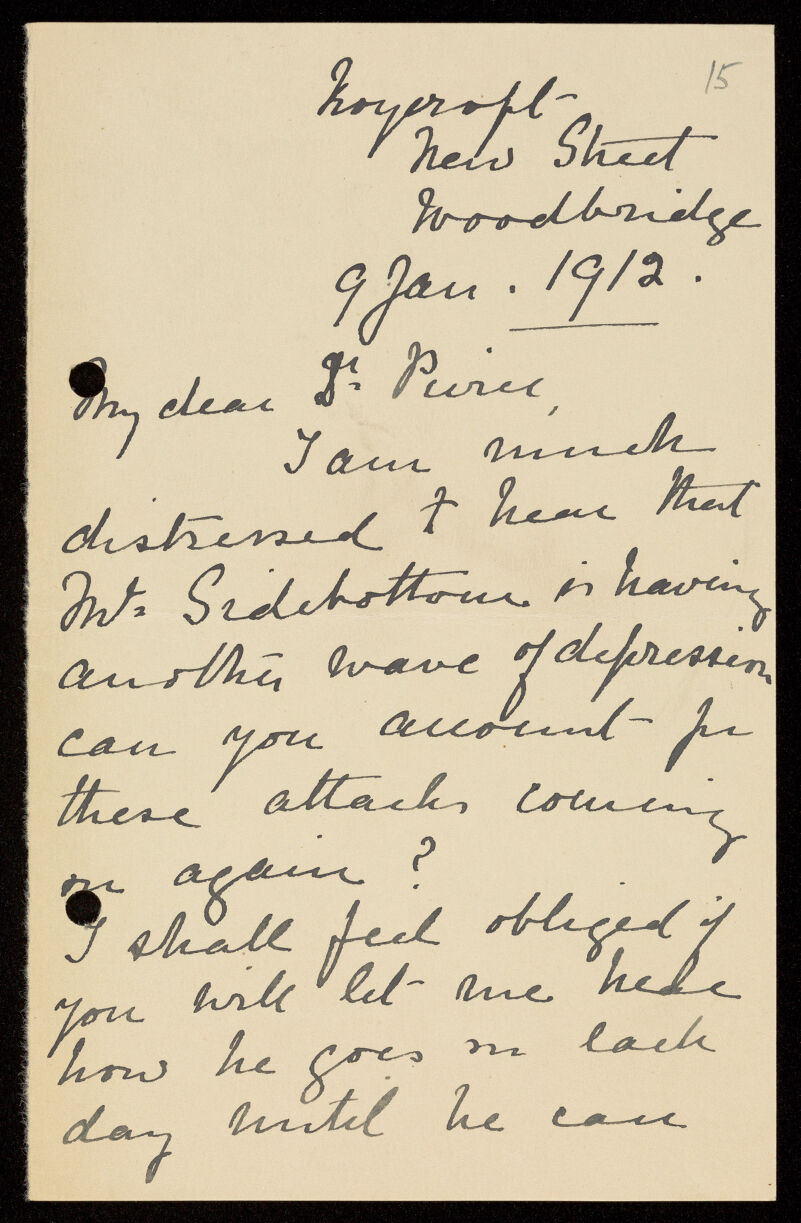 15
Roycroft
New Street
Woodbridge
9 Jan. 1912.
My dear Dr. Pierce,
I am much
distressed to hear that
Mr. Sidebottom is having
another wave of depression
can you account for
these attacks coming
on again?
I shall feel obliged if
you will let me hear
how he goes on each
day until he can